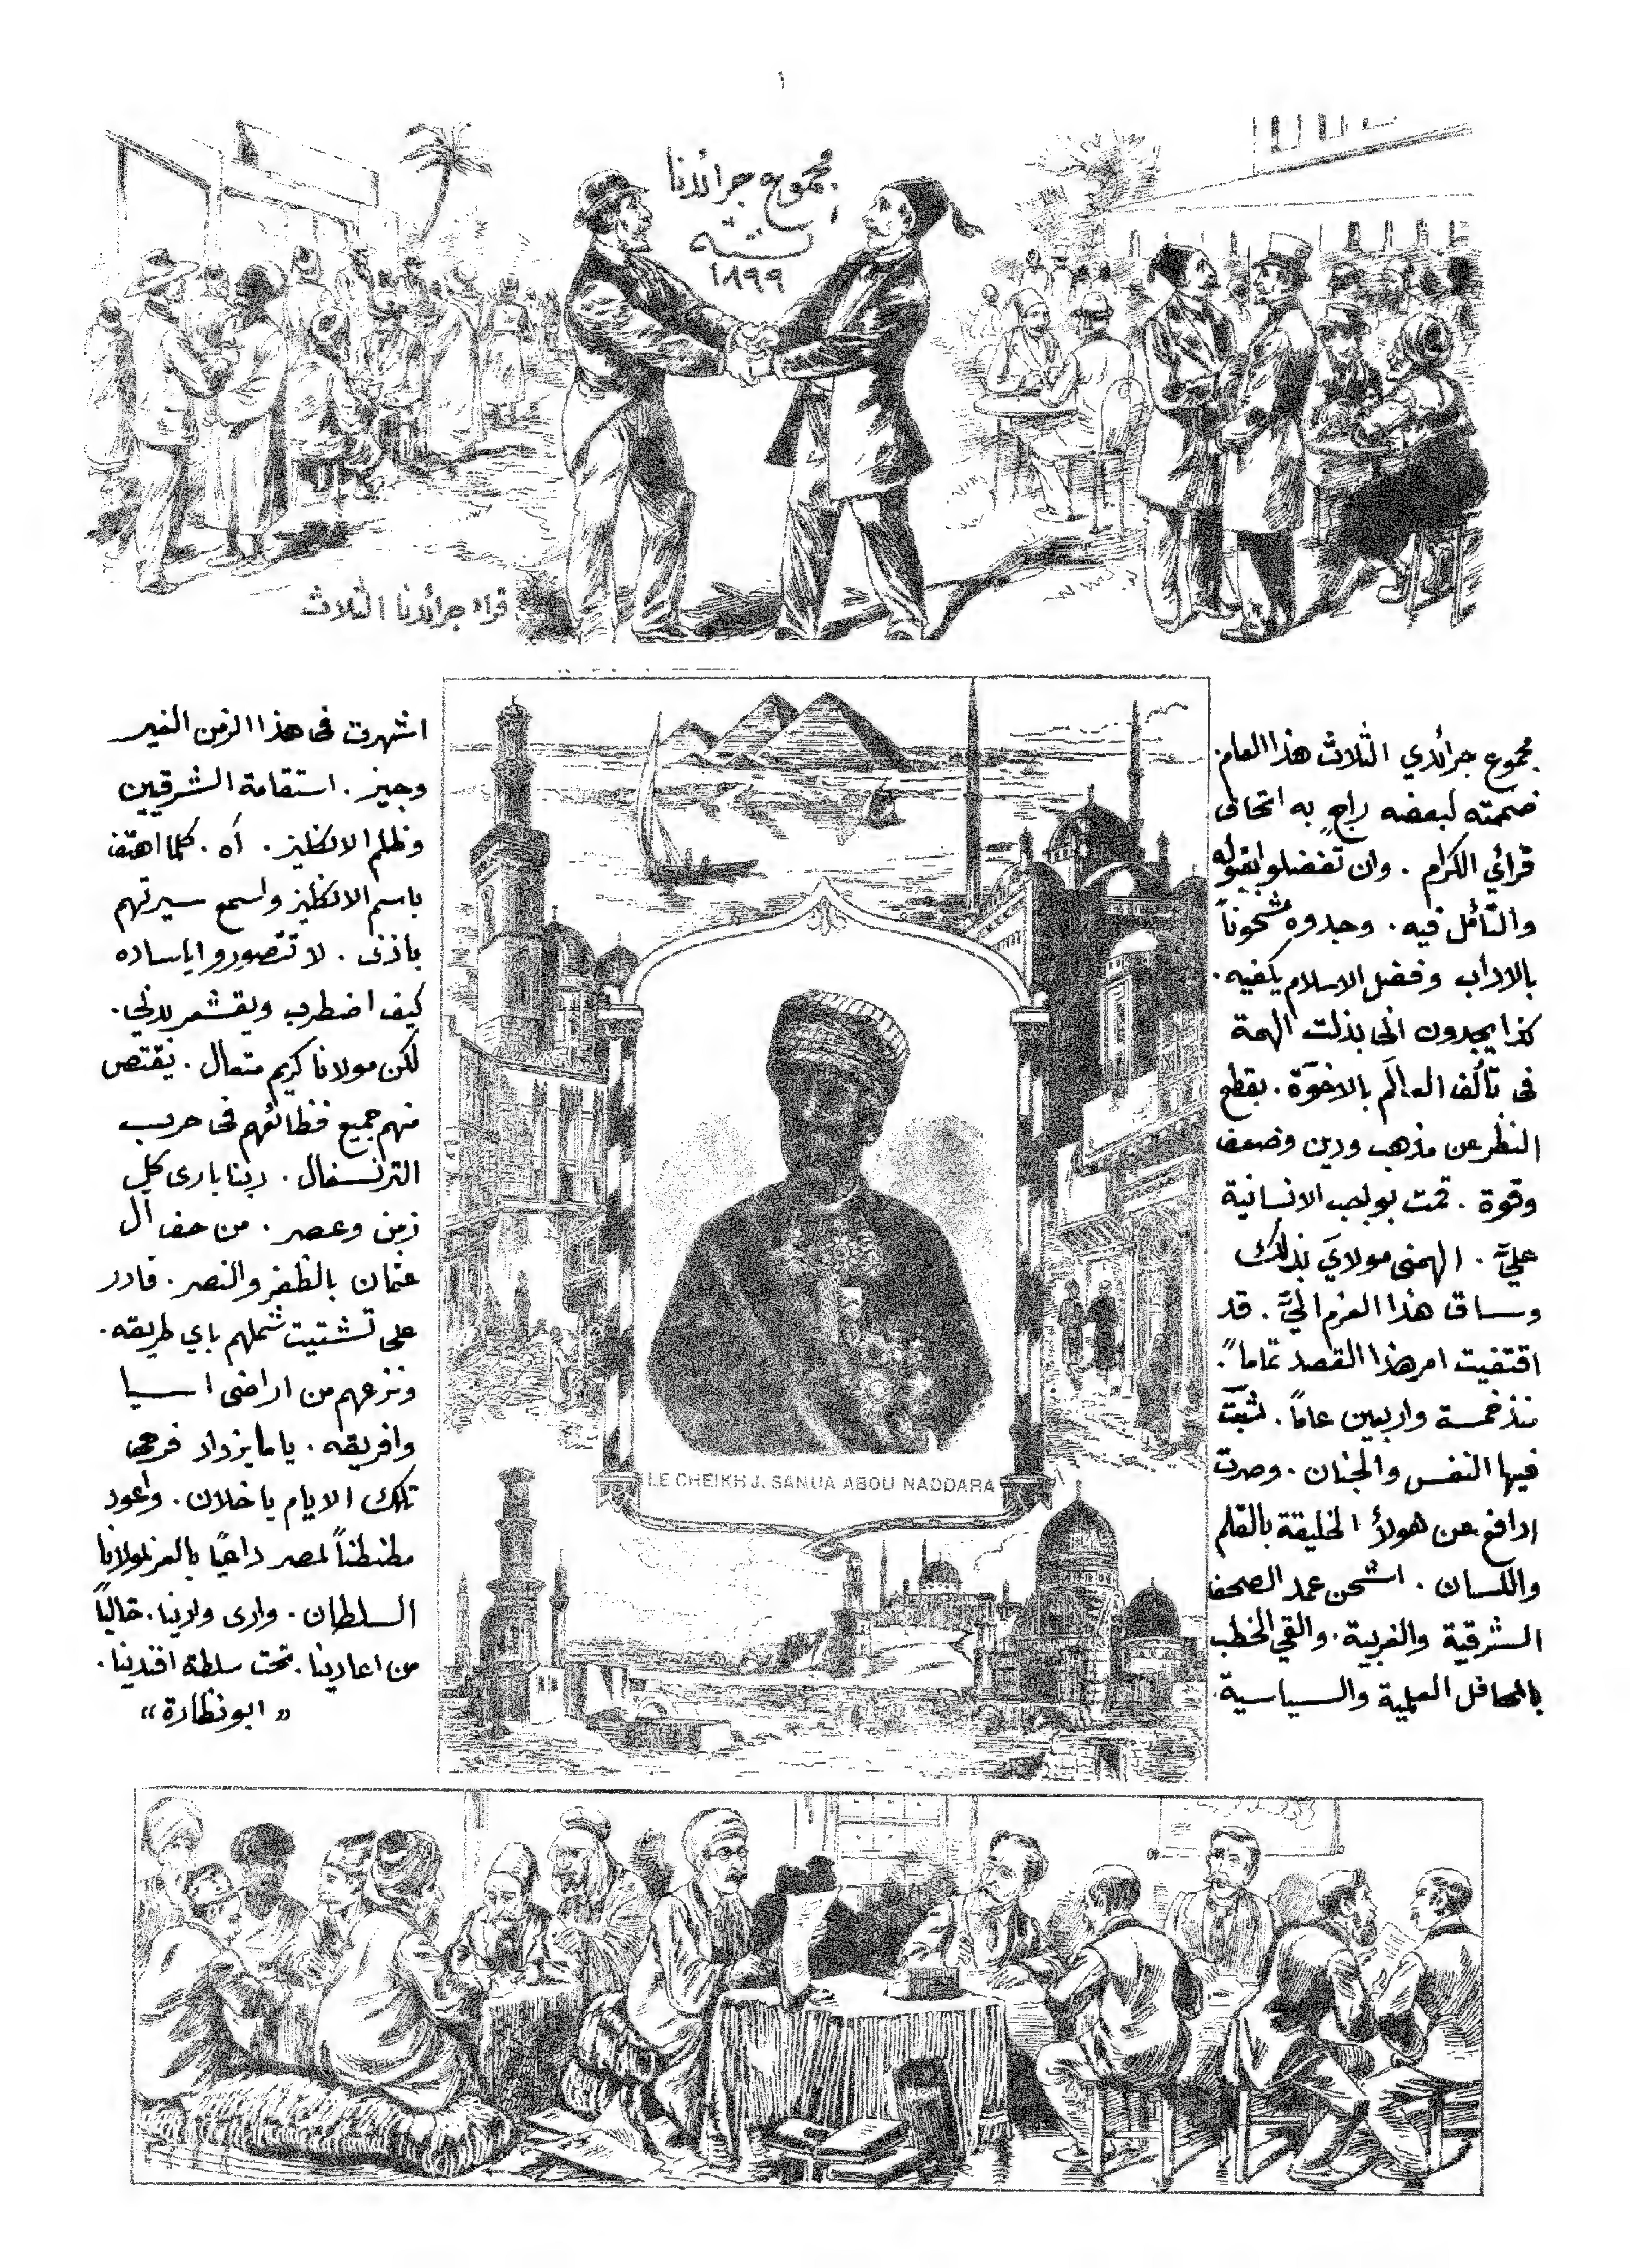 ١
مجموع جرائدنا
لسنة
١٨٩٩
قراء جرائدنا الثلاث
مجموع جرائدي الثلاث هذا العام.
ضممته لبعضه راجٍ به اتحاف
قرائي الكرام . وان تفضلوا بقبوله
والتأمل فيه . وجدوه مشحوناً
بالاداب وفضل الاسلام يكفيه .
كذا يجدون اني بذلت الهمة
فى تألف العالَم بالاخوّة . بقطع
النظر عن مذهب ودين وضعف
وقوة . قمت بواجب الانسانية
عليَّ . الهمنى مولايَ بذلك
وساق هذا العزم اليَّ . قد
اقتفيت امر هذا القصد تماماً .
منذ خمسة واربعين عاماً . شبَّت
فيها النفس والجنان . وصرت
ادافع عن هولأ الخليقة بالقلم
واللسان . اشحن عمد الصحف
الشرقية والغربية . والقي الخطب
بالمحافل العلمية والسياسية .
اشهرت فى هذا الزمن الغير
وجيز . استقامة الشرقيين
وظلم الانكليز . أه . كلما اهتف
باسم الانكليز واسمع سيرتهم
بأذنى . لا تتصوروا ياساده
كيف اضطرب ويقشعر بدني .
لكن مولانا كريم متعال . يقتص
منهم جميع فظائعهم فى حرب
الترنسفال . ربنا بارى كل
زمن وعصر . من حف ال
عثمان بالظفر والنصر . قادر
على تشتيت شملهم باي طريقه .
ونزعهم من اراضى اسيا
وافريقه . ياما يزداد فرحى
تلك الايام يا خلان . واعود
مطنطناً لمصر داعيًا بالعز لمولانا
السلطان . وارى وادينا . خالياً
من اعادينا . تحت سلطة افندينا .
« ابو نظارة »
LE CHEIKH J. SANUA ABOU NADDARA